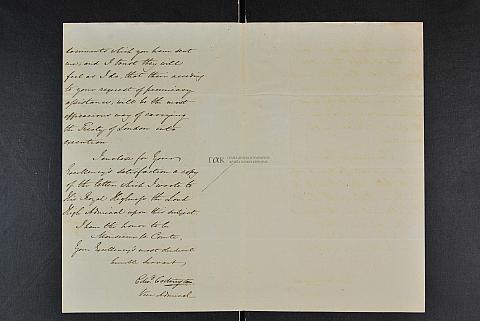 documents which you have sent
me, and I trust they will
feel as I do, that their acceding
to your request of pecuniary
assistance, will be the most
efficacious way of carrying
the Treaty of London into
execution.
I enclose for Your
Excellency's satisfaction a copy
of the letter which I wrote to
His Royal Highness the Lord
High Admiral upon this subject.
I have the honor to be
Monsieur le Comte,
Your Excellency's most obedient
humble servant
Edwd Codrington
Vice Admiral
ΓΑΚ